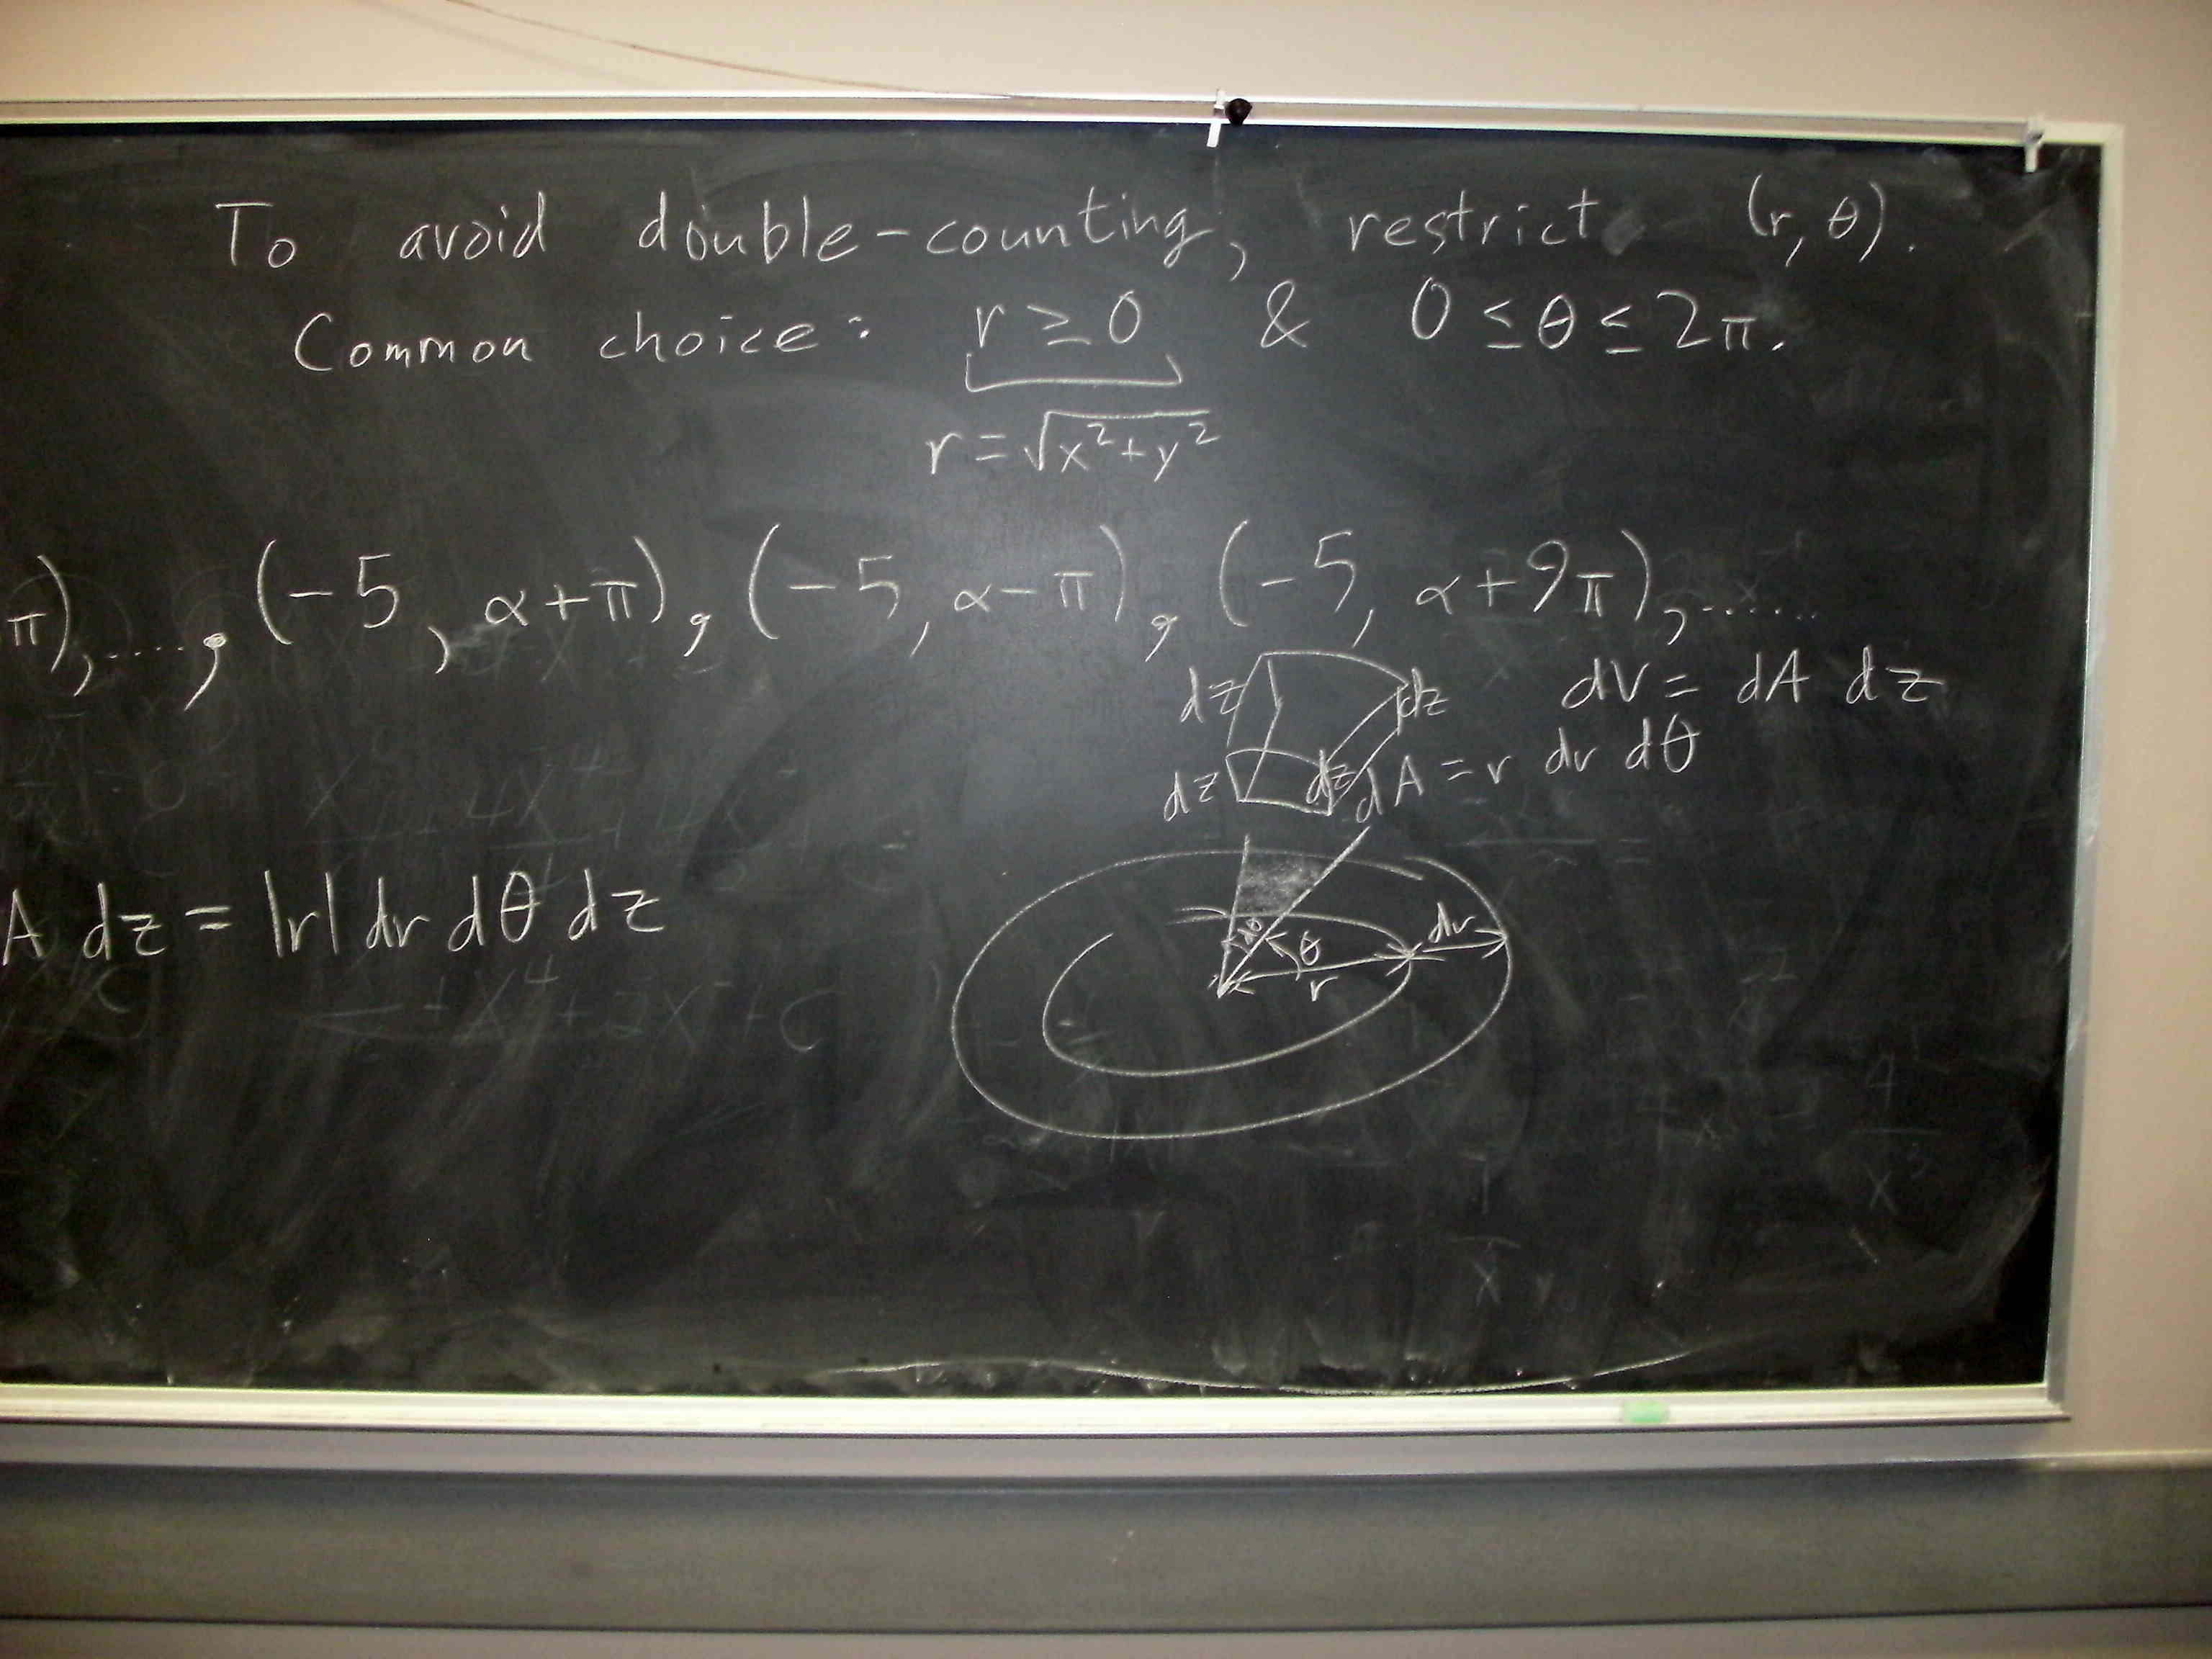 To avoid double-counting, restrict (r, θ).
Common choice: r ≥ 0 & 0 ≤ θ ≤ 2π.
r = √x²+y²
π), ....., (-5, α+π), (-5, α-π), (-5, α+9π), ......
dz dz dV = dA dz
dz dz dA = r dr dθ
A dz = |r| dr dθ dz
dθ θ dr
r